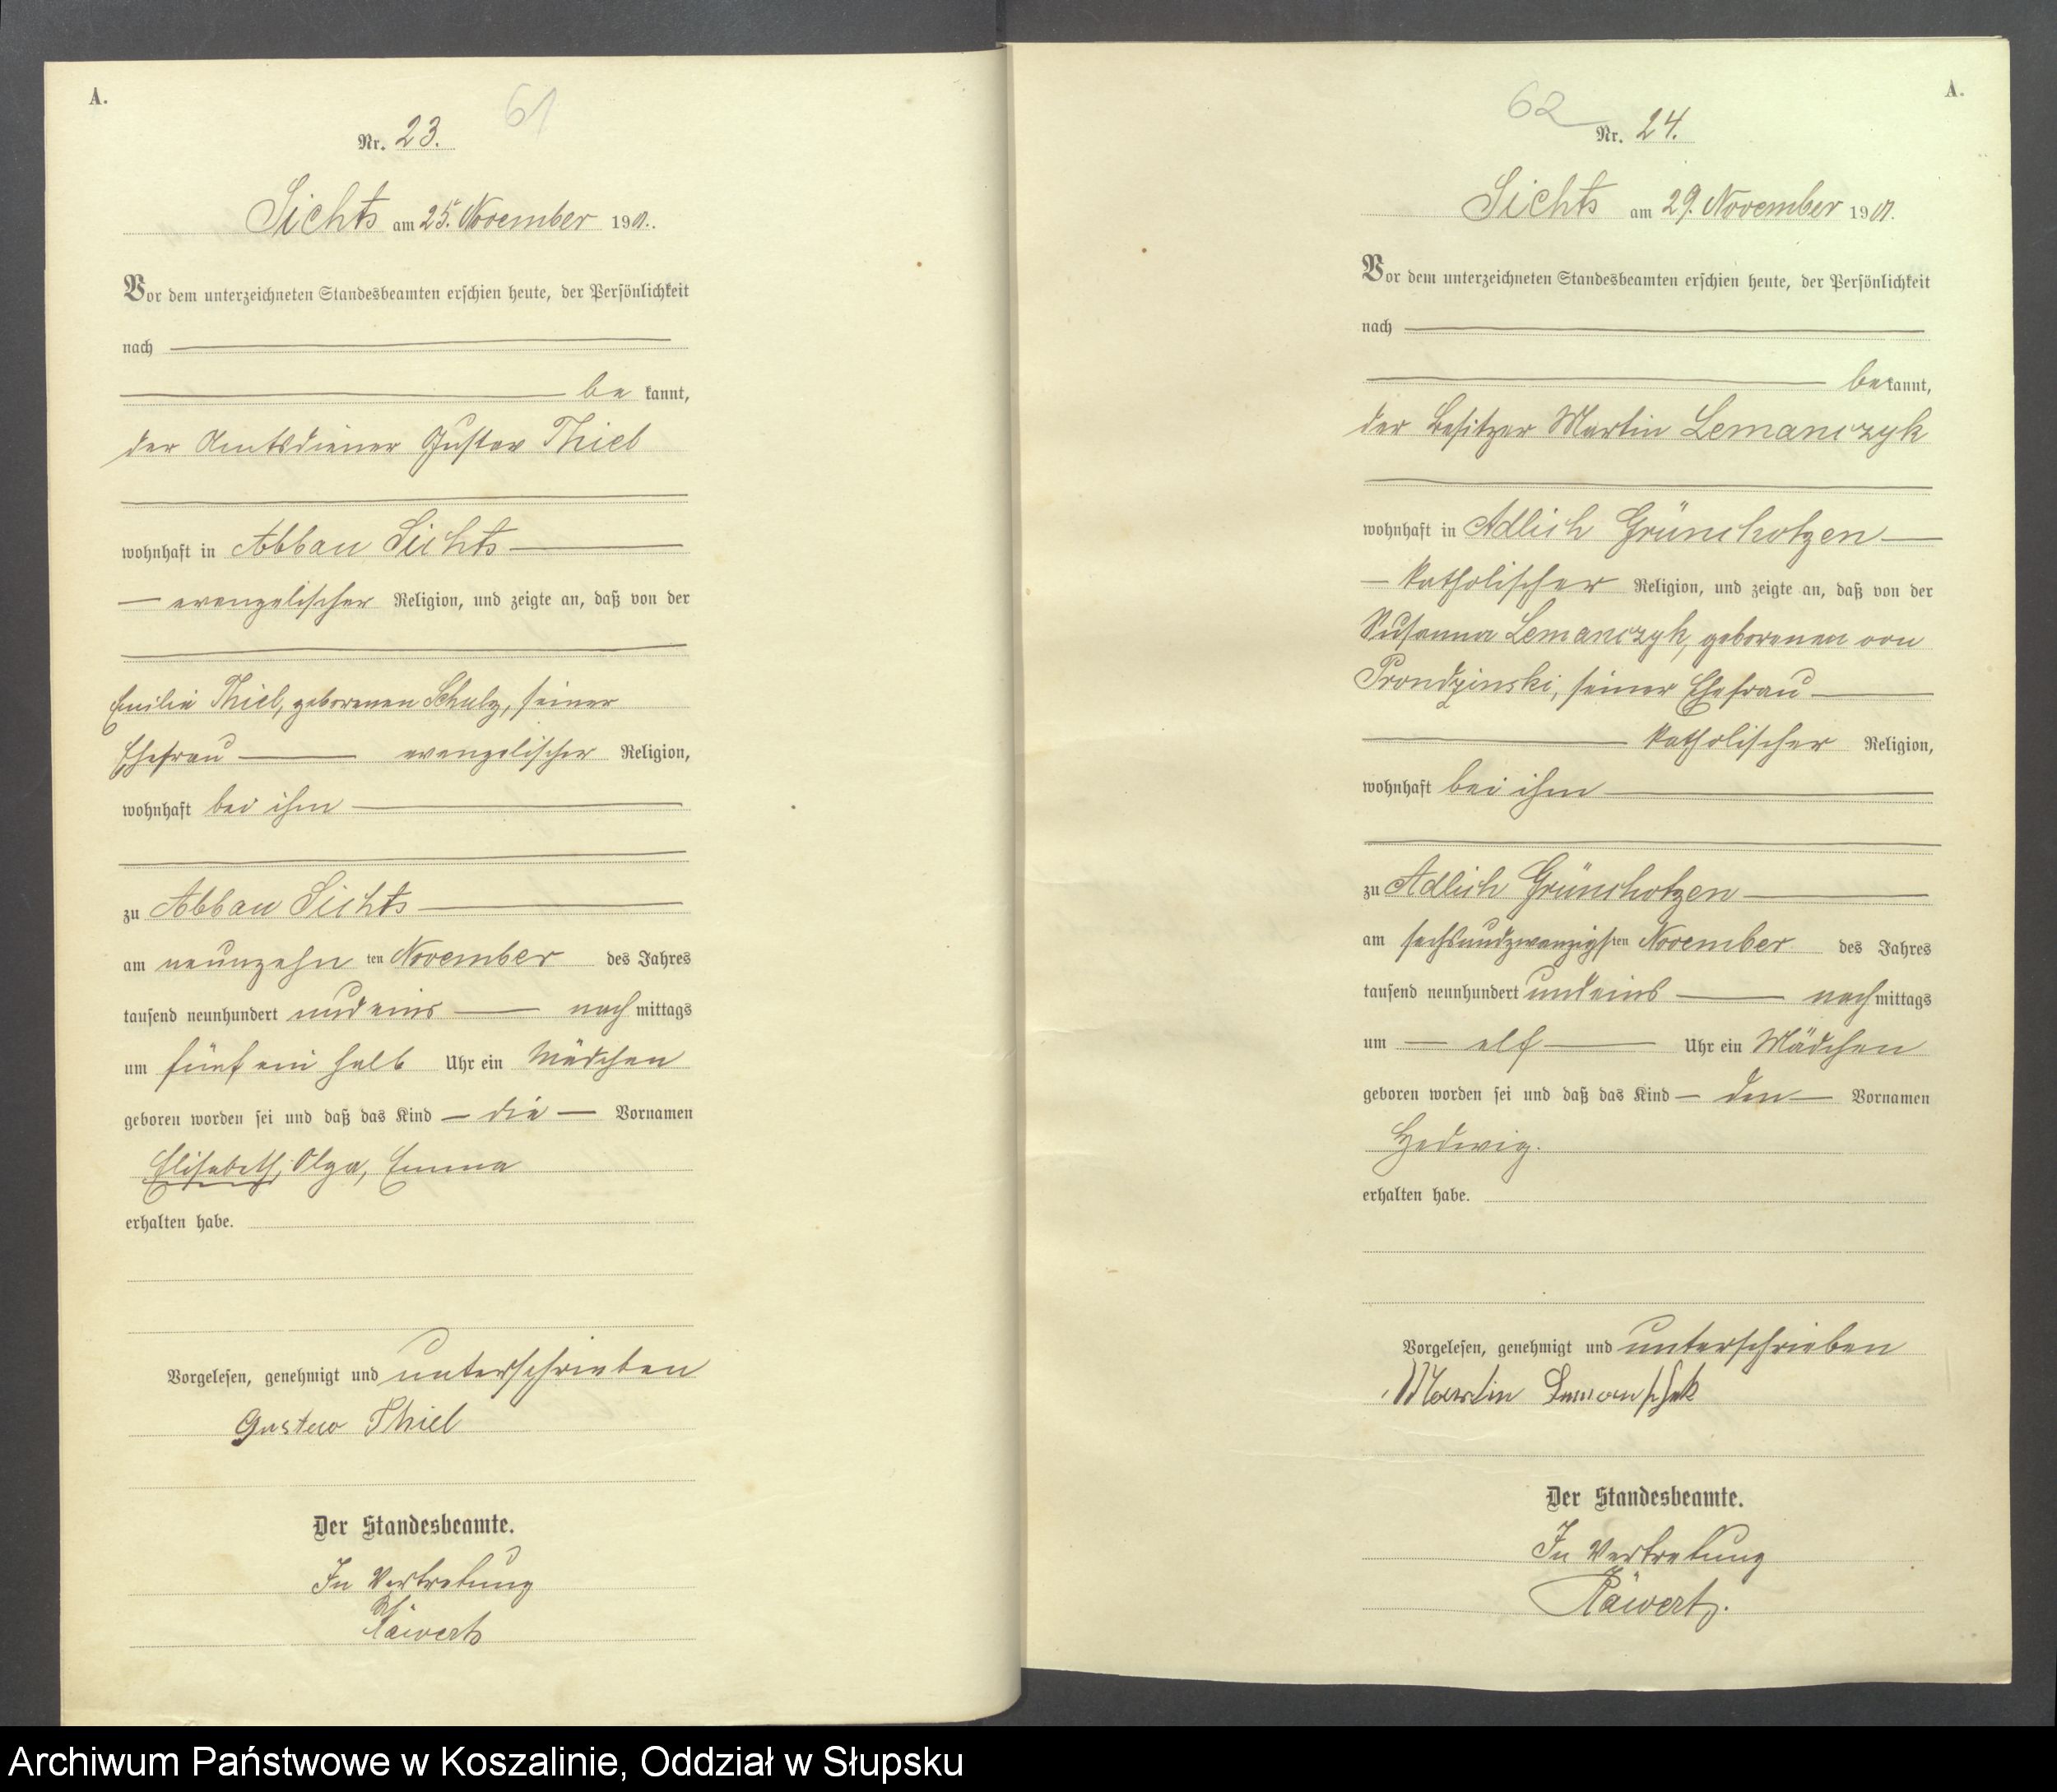 A.
61
Nr. 23.
Sichts am 25. November 1901.
Vor dem unterzeichneten Standesbeamten erschien heute, der Persönlichkeit
nach
be kannt,
der Amtsdiener Gustav Thiel
wohnhaft in Abbau Sichts
evangelischer Religion, und zeigte an, daß von der
Emilie Thiel, geborenen Schulz, seiner
Ehefrau evangelischer Religion,
wohnhaft bei ihm
zu Abbau Sichts
am neunzehn ten November des Jahres
tausend neunhundert und eins nach mittags
um fünf ein halb Uhr ein Mädchen
geboren worden sei und daß das Kind die Vornamen
Elisabeth, Olga, Emma
erhalten habe.
Vorgelesen, genehmigt und unterschrieben
Gustav Thiel
Der Standesbeamte.
In Vertretung
A.
62
Nr. 24.
Sichts am 29. November 1901.
Vor dem unterzeichneten Standesbeamten erschien heute, der Persönlichkeit
nach
bekannt,
der Besitzer Martin Lemanczyk
wohnhaft in Adlich Grünchotzen
katholischer Religion, und zeigte an, daß von der
Susanna Lemanczyk, geborenen von
Prondzinski, seiner Ehefrau
katholischer Religion,
wohnhaft bei ihm
zu Adlich Grünchotzen
am sechsundzwanzigsten November des Jahres
tausend neunhundert und eins nach mittags
um elf Uhr ein Mädchen
geboren worden sei und daß das Kind den Vornamen
Hedwig.
erhalten habe.
Vorgelesen, genehmigt und unterschrieben
Martin
Der Standesbeamte.
In Vertretung
Archiwum Państwowe w Koszalinie, Oddział w Słupsku